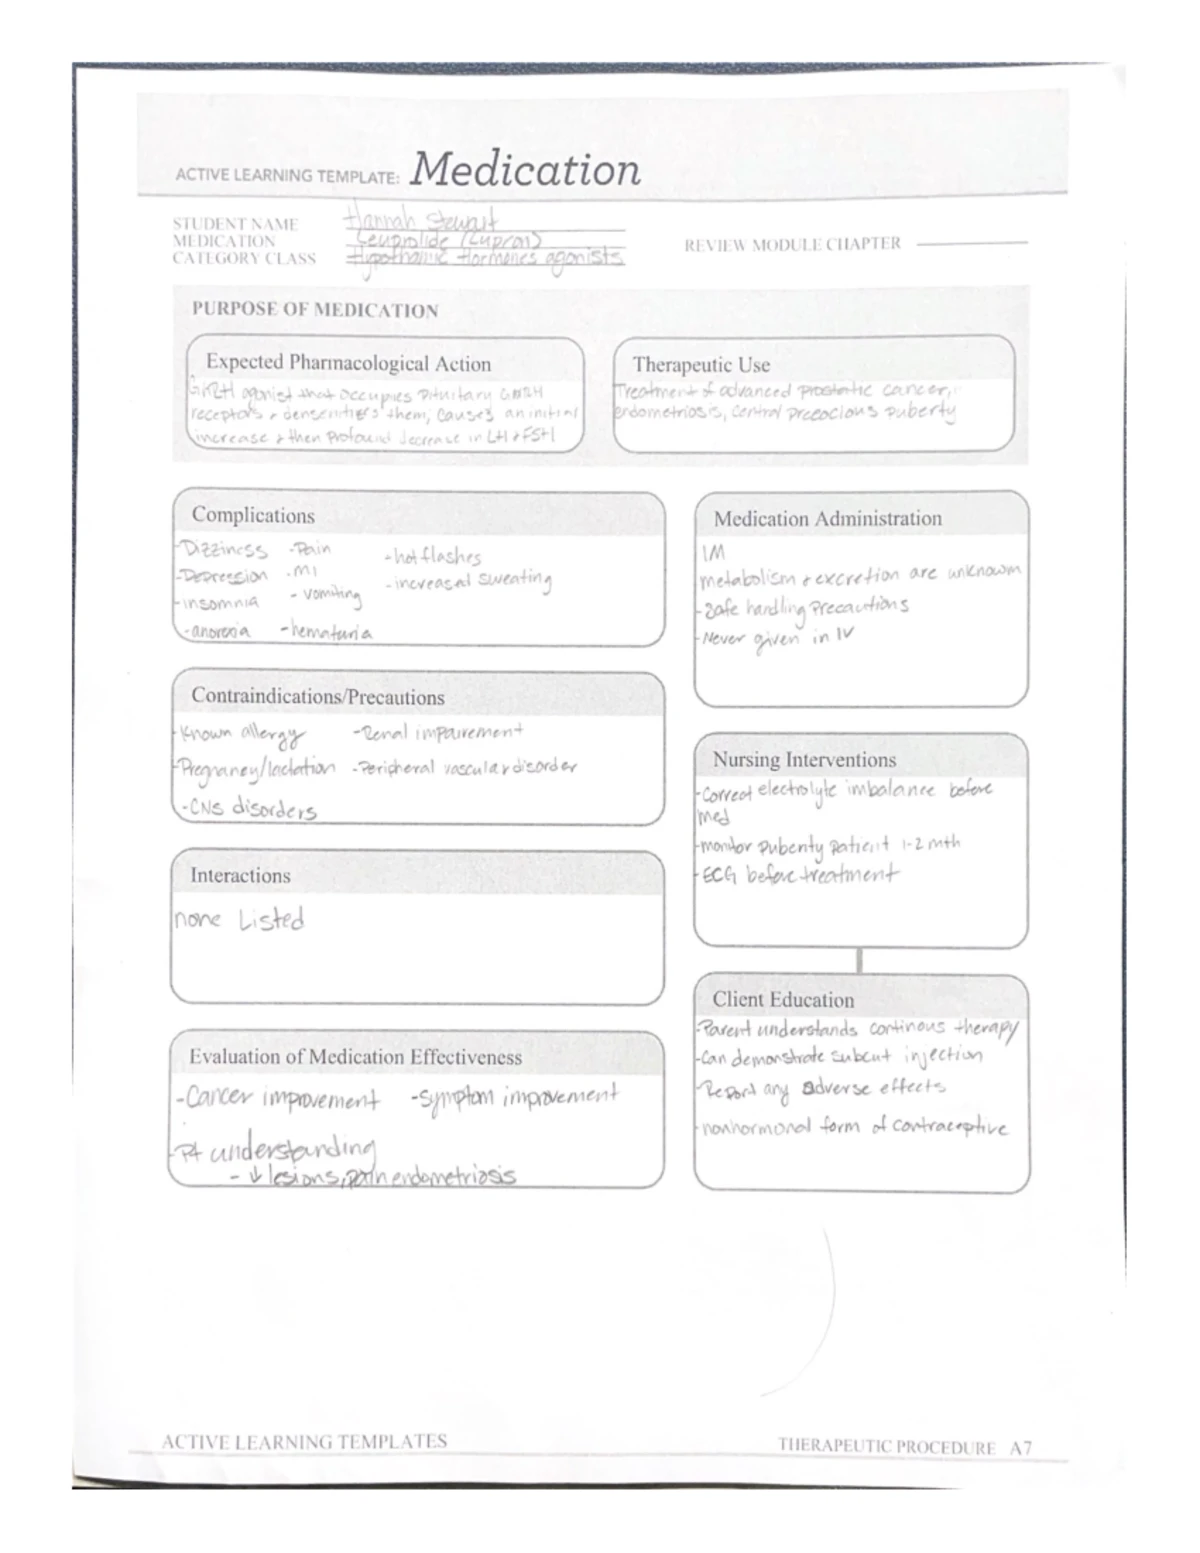 ACTIVE LEARNING TEMPLATE: Medication
STUDENT NAME Hannah Stewart
MEDICATION Leuprolide (Lupron)
CATEGORY CLASS Hypothalmic Hormones agonists
REVIEW MODULE CHAPTER
PURPOSE OF MEDICATION
Expected Pharmacological Action
GnRH agonist that occupies pituitary GnRH
receptors & densentizes them; causes an initial
increase & then profound decrease in LH & FSH
Therapeutic Use
Treatment of advanced prostatic cancer,
endometriosis, central precocious puberty
Complications
-Dizziness -Pain -hot flashes
-Depression -MI -increased sweating
-insomnia -vomiting
-anorexia -hematuria
Medication Administration
IM
metabolism & excretion are unknown
-Safe handling precautions
-Never given in IV
Contraindications/Precautions
-Known allergy -Renal impairement
-Pregnancy/lactation -Peripheral vascular disorder
-CNS disorders
Nursing Interventions
-Correct electrolyte imbalance before
med
-monitor puberty patient 1-2 mth
-ECG before treatment
Interactions
none Listed
Evaluation of Medication Effectiveness
-Cancer improvement -symptom improvement
-Pt understanding
-↓ lesions, pain endometriosis
Client Education
-Parent understands continous therapy
-Can demonstrate subcut injection
-Report any adverse effects
-nonhormonal form of contraceptive
ACTIVE LEARNING TEMPLATES
THERAPEUTIC PROCEDURE A7